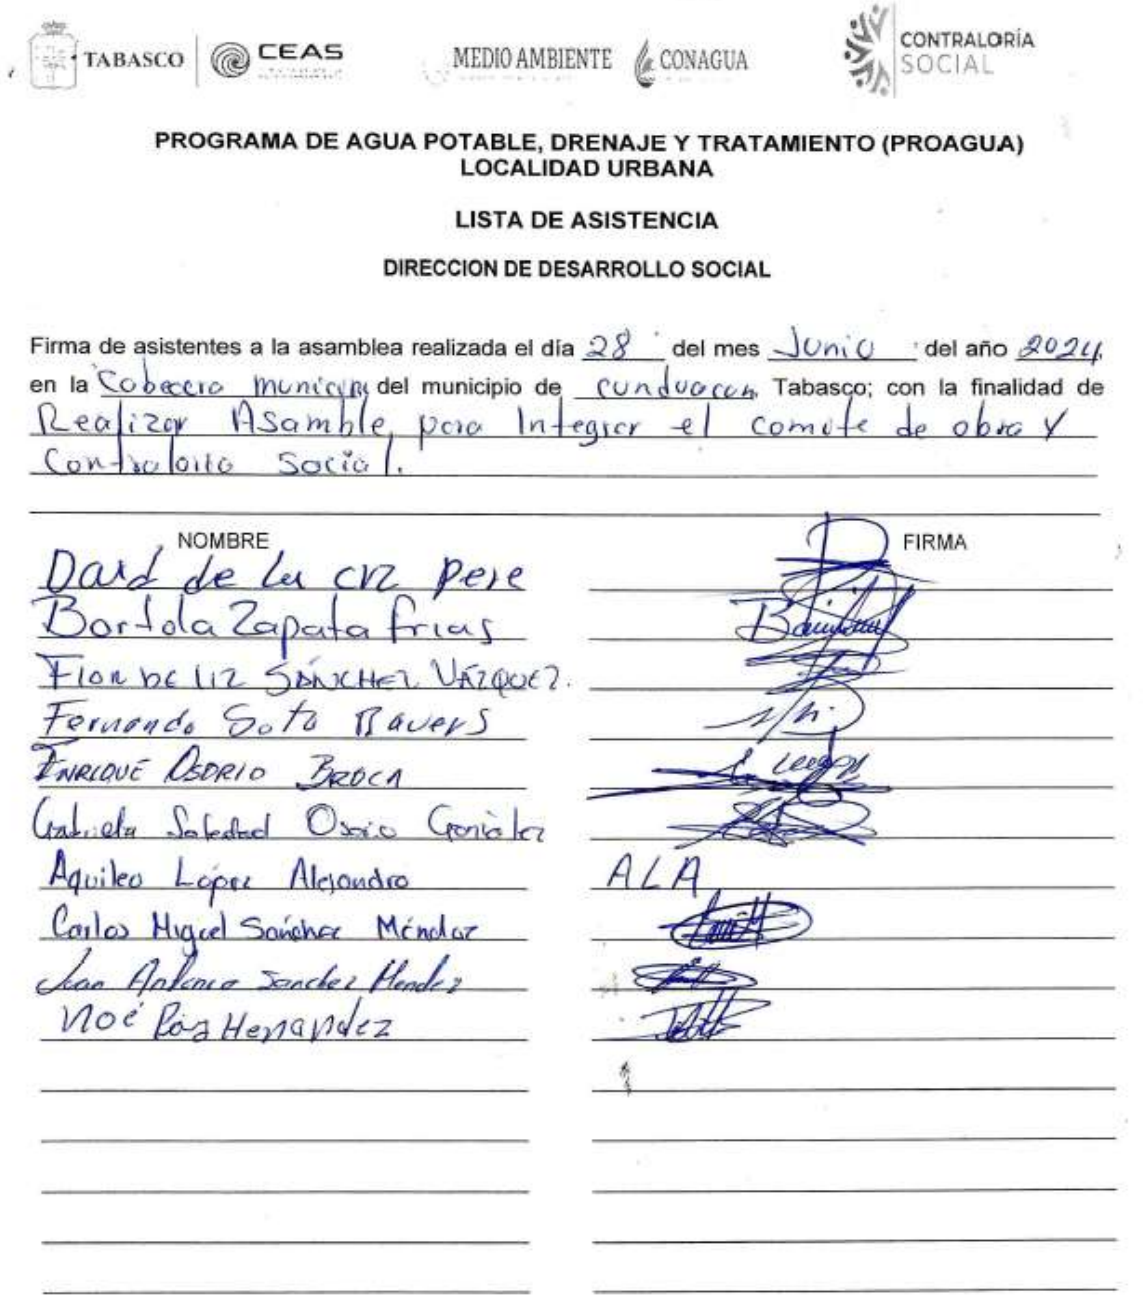 TABASCO CEAS MEDIO AMBIENTE CONAGUA CONTRALORÍA SOCIAL
PROGRAMA DE AGUA POTABLE, DRENAJE Y TRATAMIENTO (PROAGUA)
LOCALIDAD URBANA
LISTA DE ASISTENCIA
DIRECCION DE DESARROLLO SOCIAL
Firma de asistentes a la asamblea realizada el día 28 del mes Junio del año 2024,
en la Cabecera municipal del municipio de cunduacan Tabasco; con la finalidad de
Realizar Asamble, para Integrar el comite de obra Y
Contraloria Social.
NOMBRE FIRMA
David de la crz pere
Bartola Zapata frias
FLOR DE LIZ SÁNCHEZ VÁZQUEZ.
Fernando Soto
ENRIQUE OSORIO BROCA
Gabriela Soledad Osorio González
Aquileo López Alejandro ALA
Carlos Miguel Sánchez Méndez
Juan Antonio Sanchez Mendez
Noé Hernandez